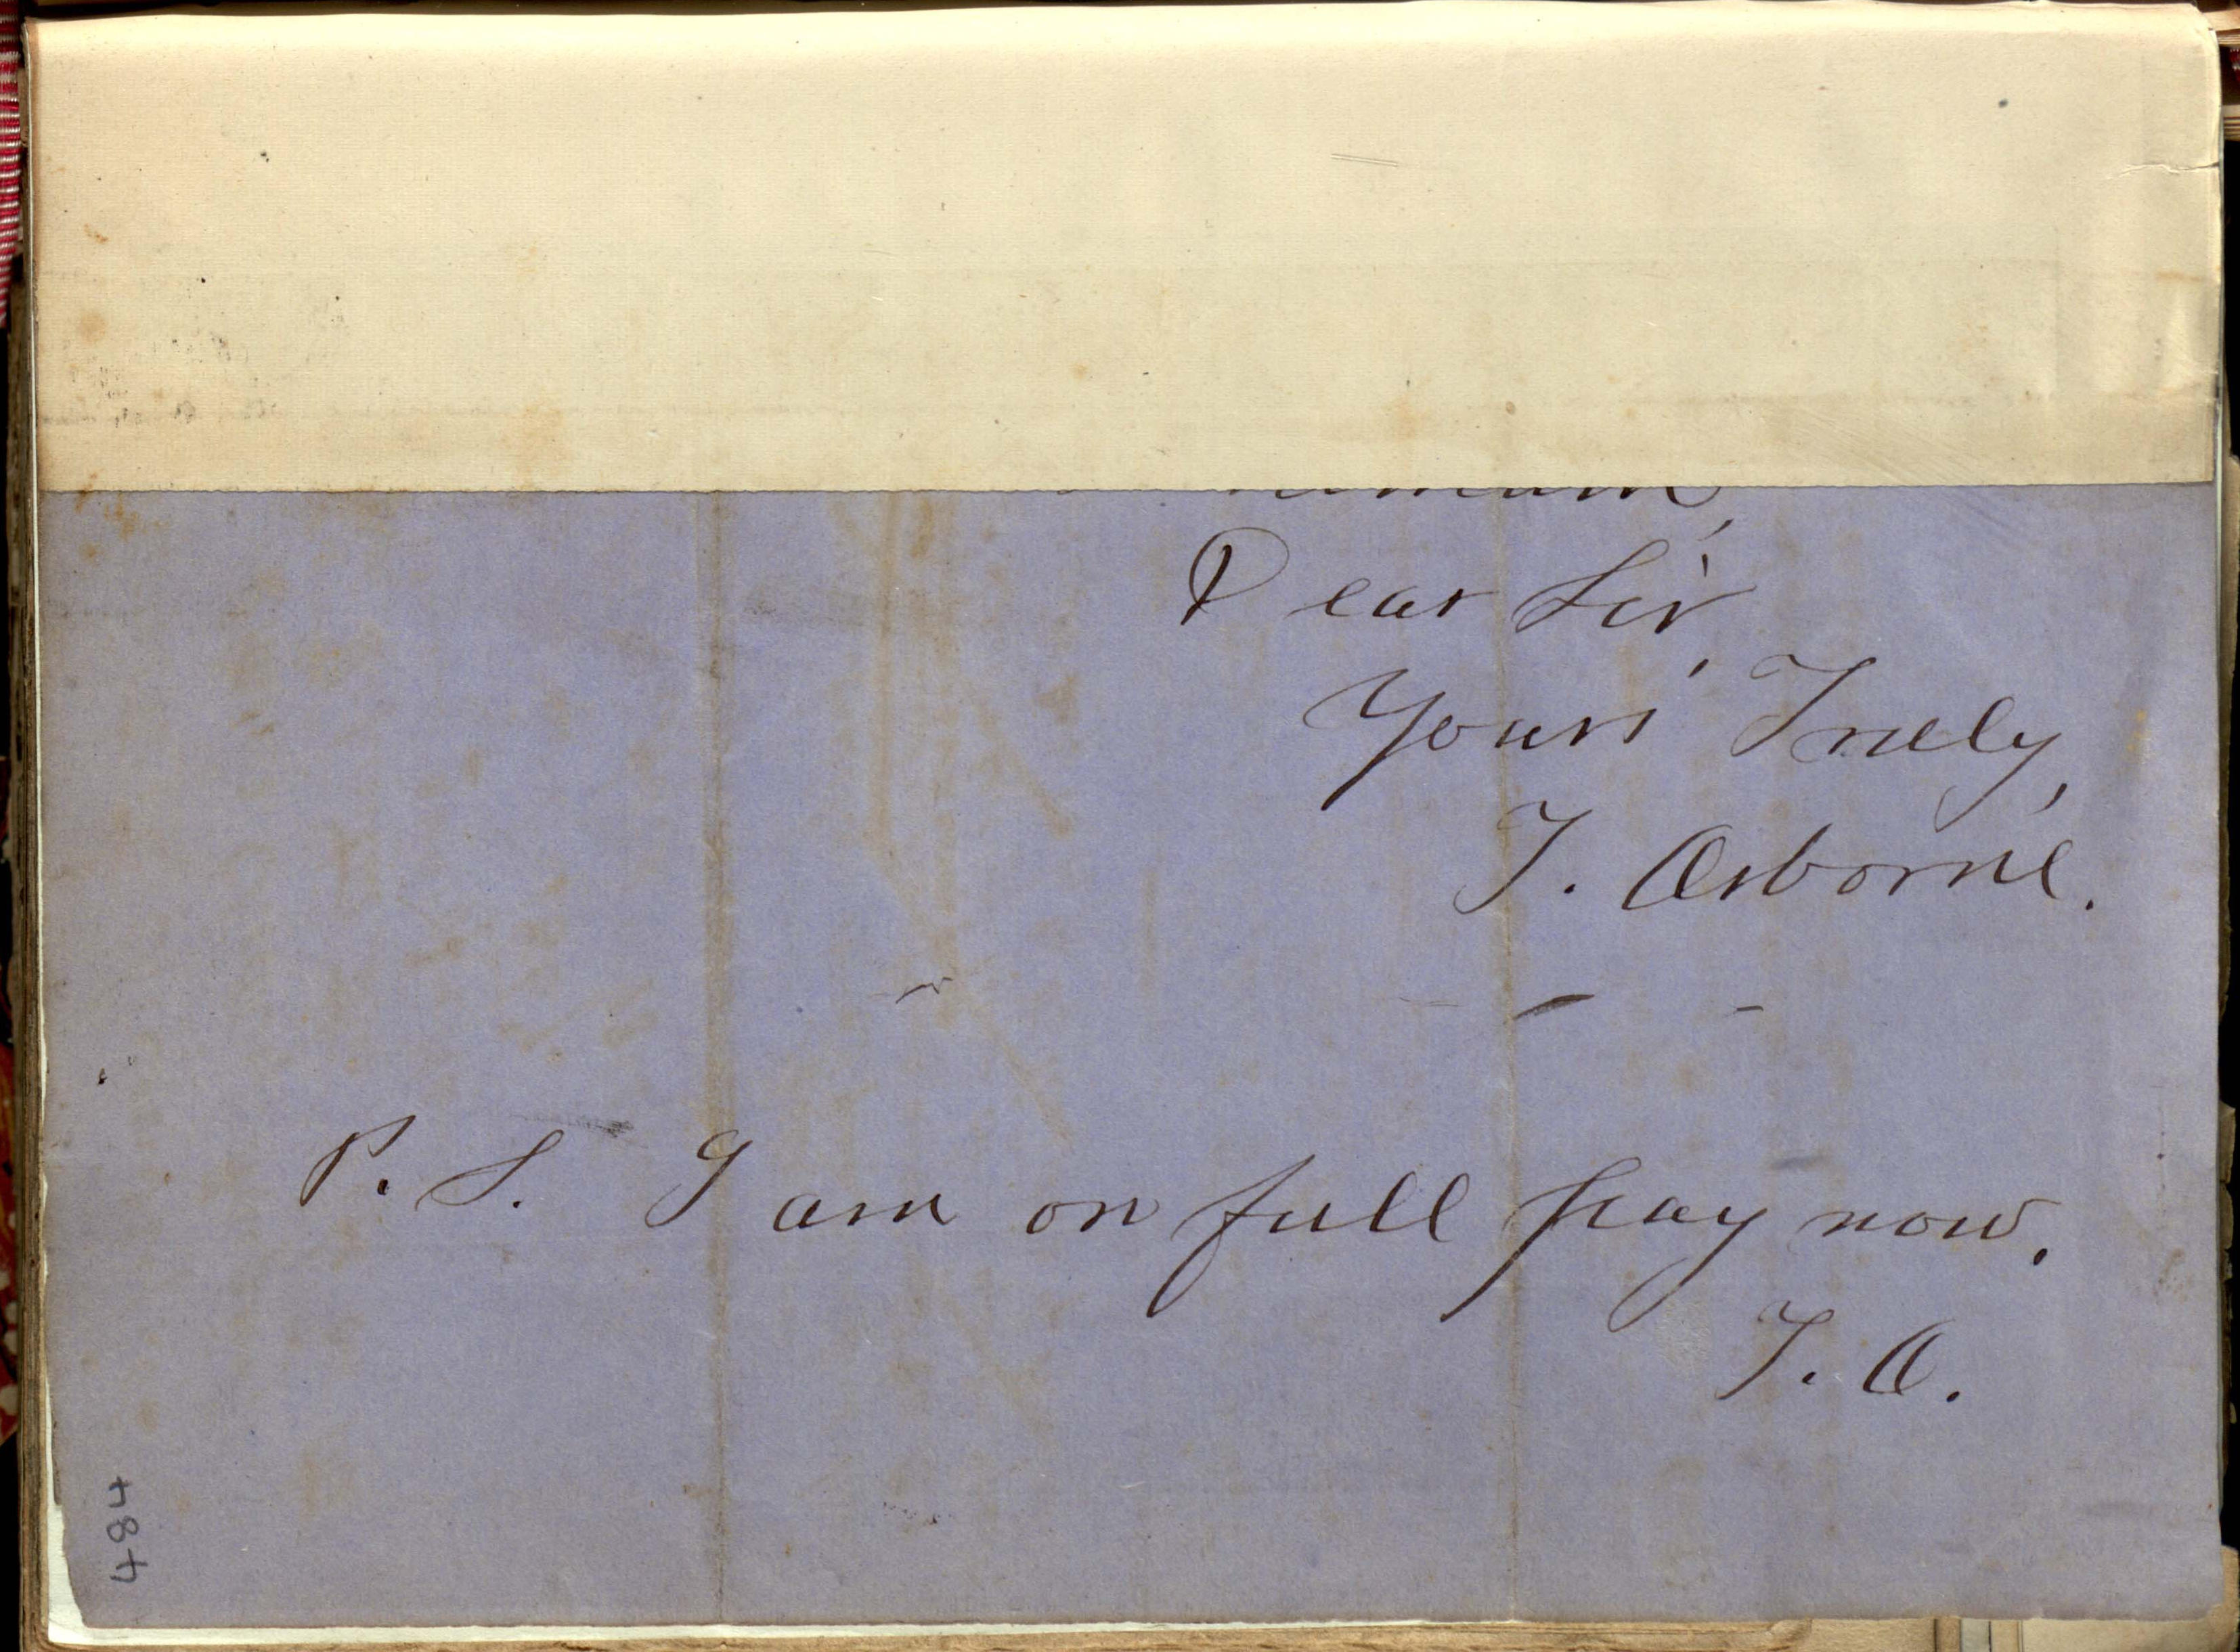 remain,
Dear Sir,
Yours Truly,
T. Osborne.
P. S. I am on full pay now.
T. O.
484